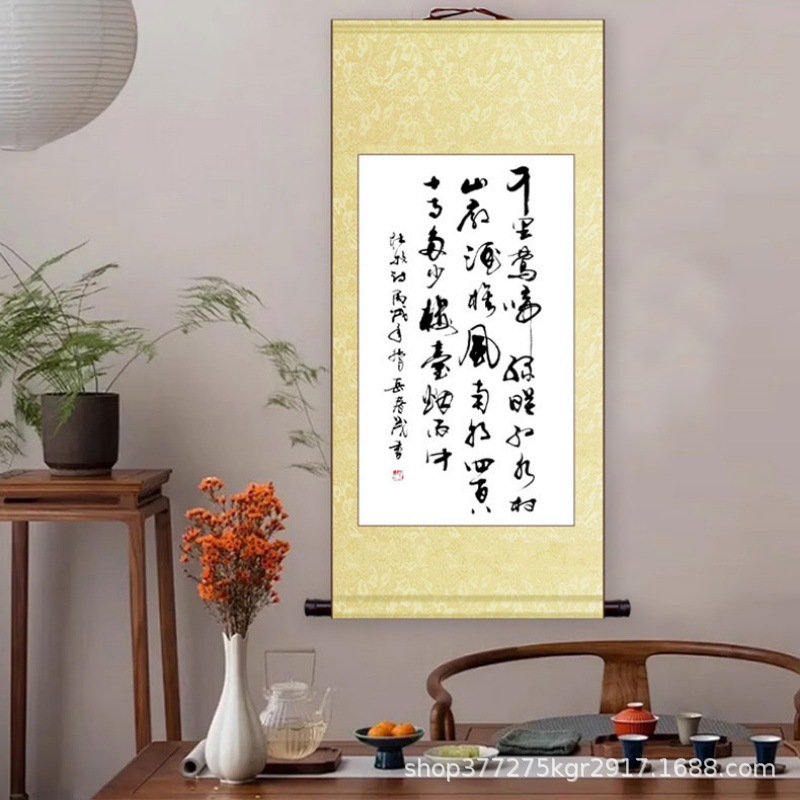 千里鶯啼綠映紅水村
山郭酒旗風南朝四百八
十寺多少樓臺烟雨中
杜牧詩丙戌年 書
shop377275kgr2917.1688.com